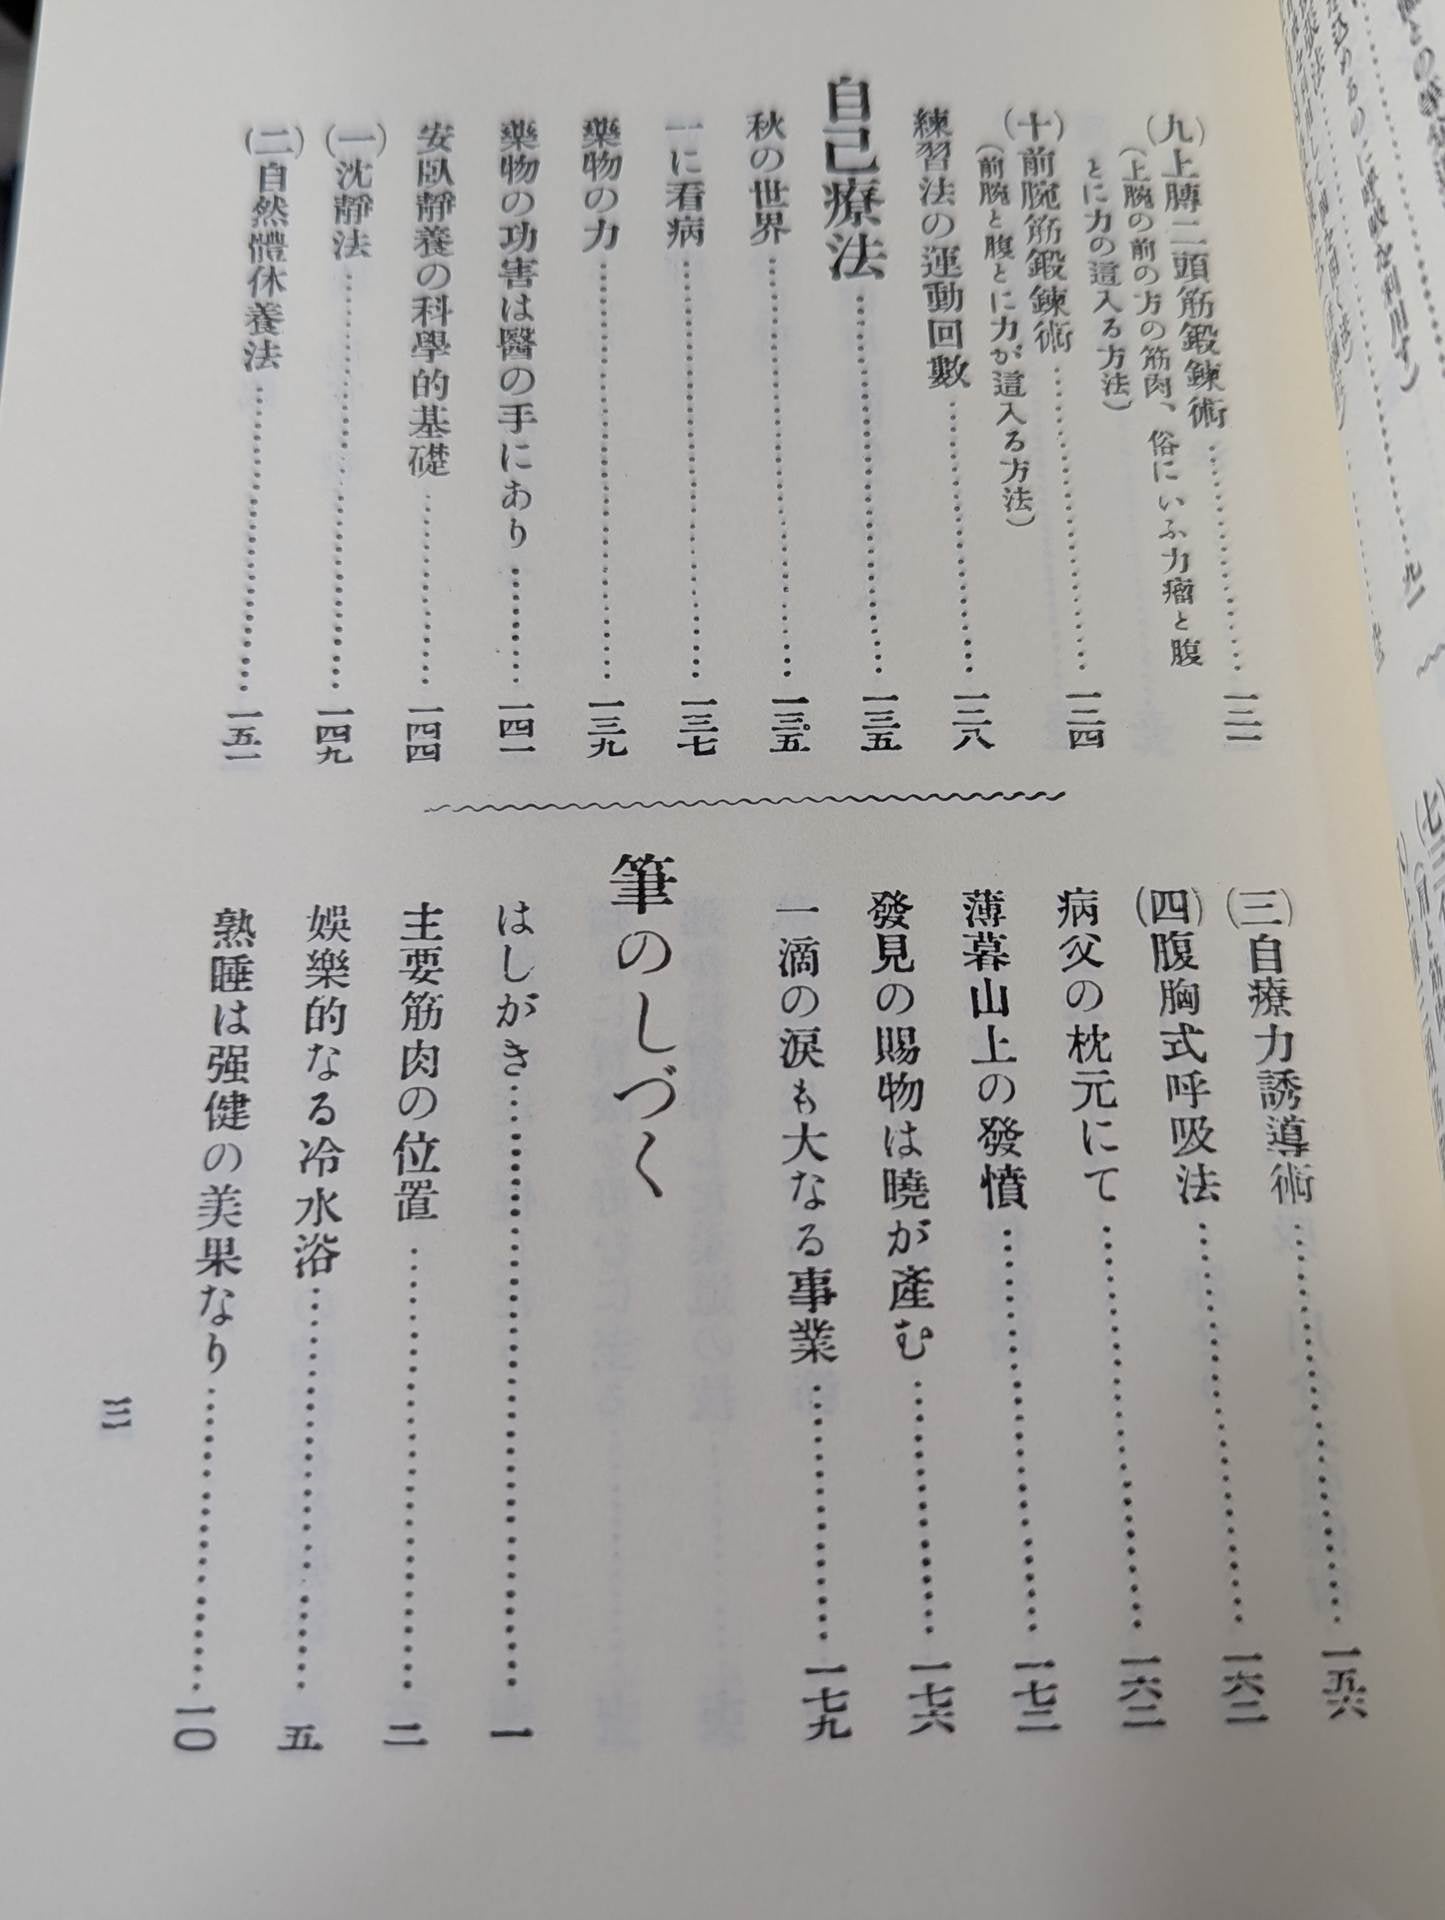 (九)上膊二頭筋鍛鍊術……一二一
(上腕の前の方の筋肉、俗にいふ力瘤と腹
とに力の這入る方法)
(十)前腕筋鍛鍊術……一二四
(前腕と腹とに力が這入る方法)
練習法の運動回數……一二八
自己療法……一三五
秋の世界……一三五
一に看病……一三七
藥物の力……一三九
藥物の功害は醫の手にあり……一四一
安臥靜養の科學的基礎……一四四
(一)沈靜法……一四九
(二)自然體休養法……一五一
(三)自療力誘導術……一五六
(四)腹胸式呼吸法……一六二
病父の枕元にて……一六二
薄暮山上の發憤……一七二
發見の賜物は曉が產む……一七六
一滴の淚も大なる事業……一七九
筆のしづく
はしがき……一
主要筋肉の位置……二
娛樂的なる冷水浴……五
熟睡は强健の美果なり……一〇
三